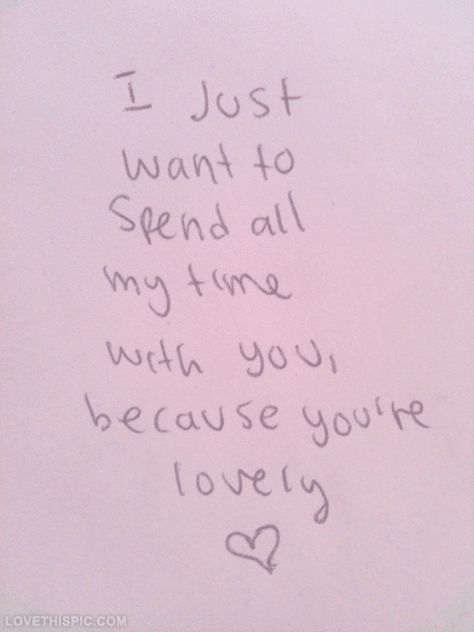 I Just
want to
Spend all
my time
with you,
because you're
lovely
LOVETHISPIC.COM